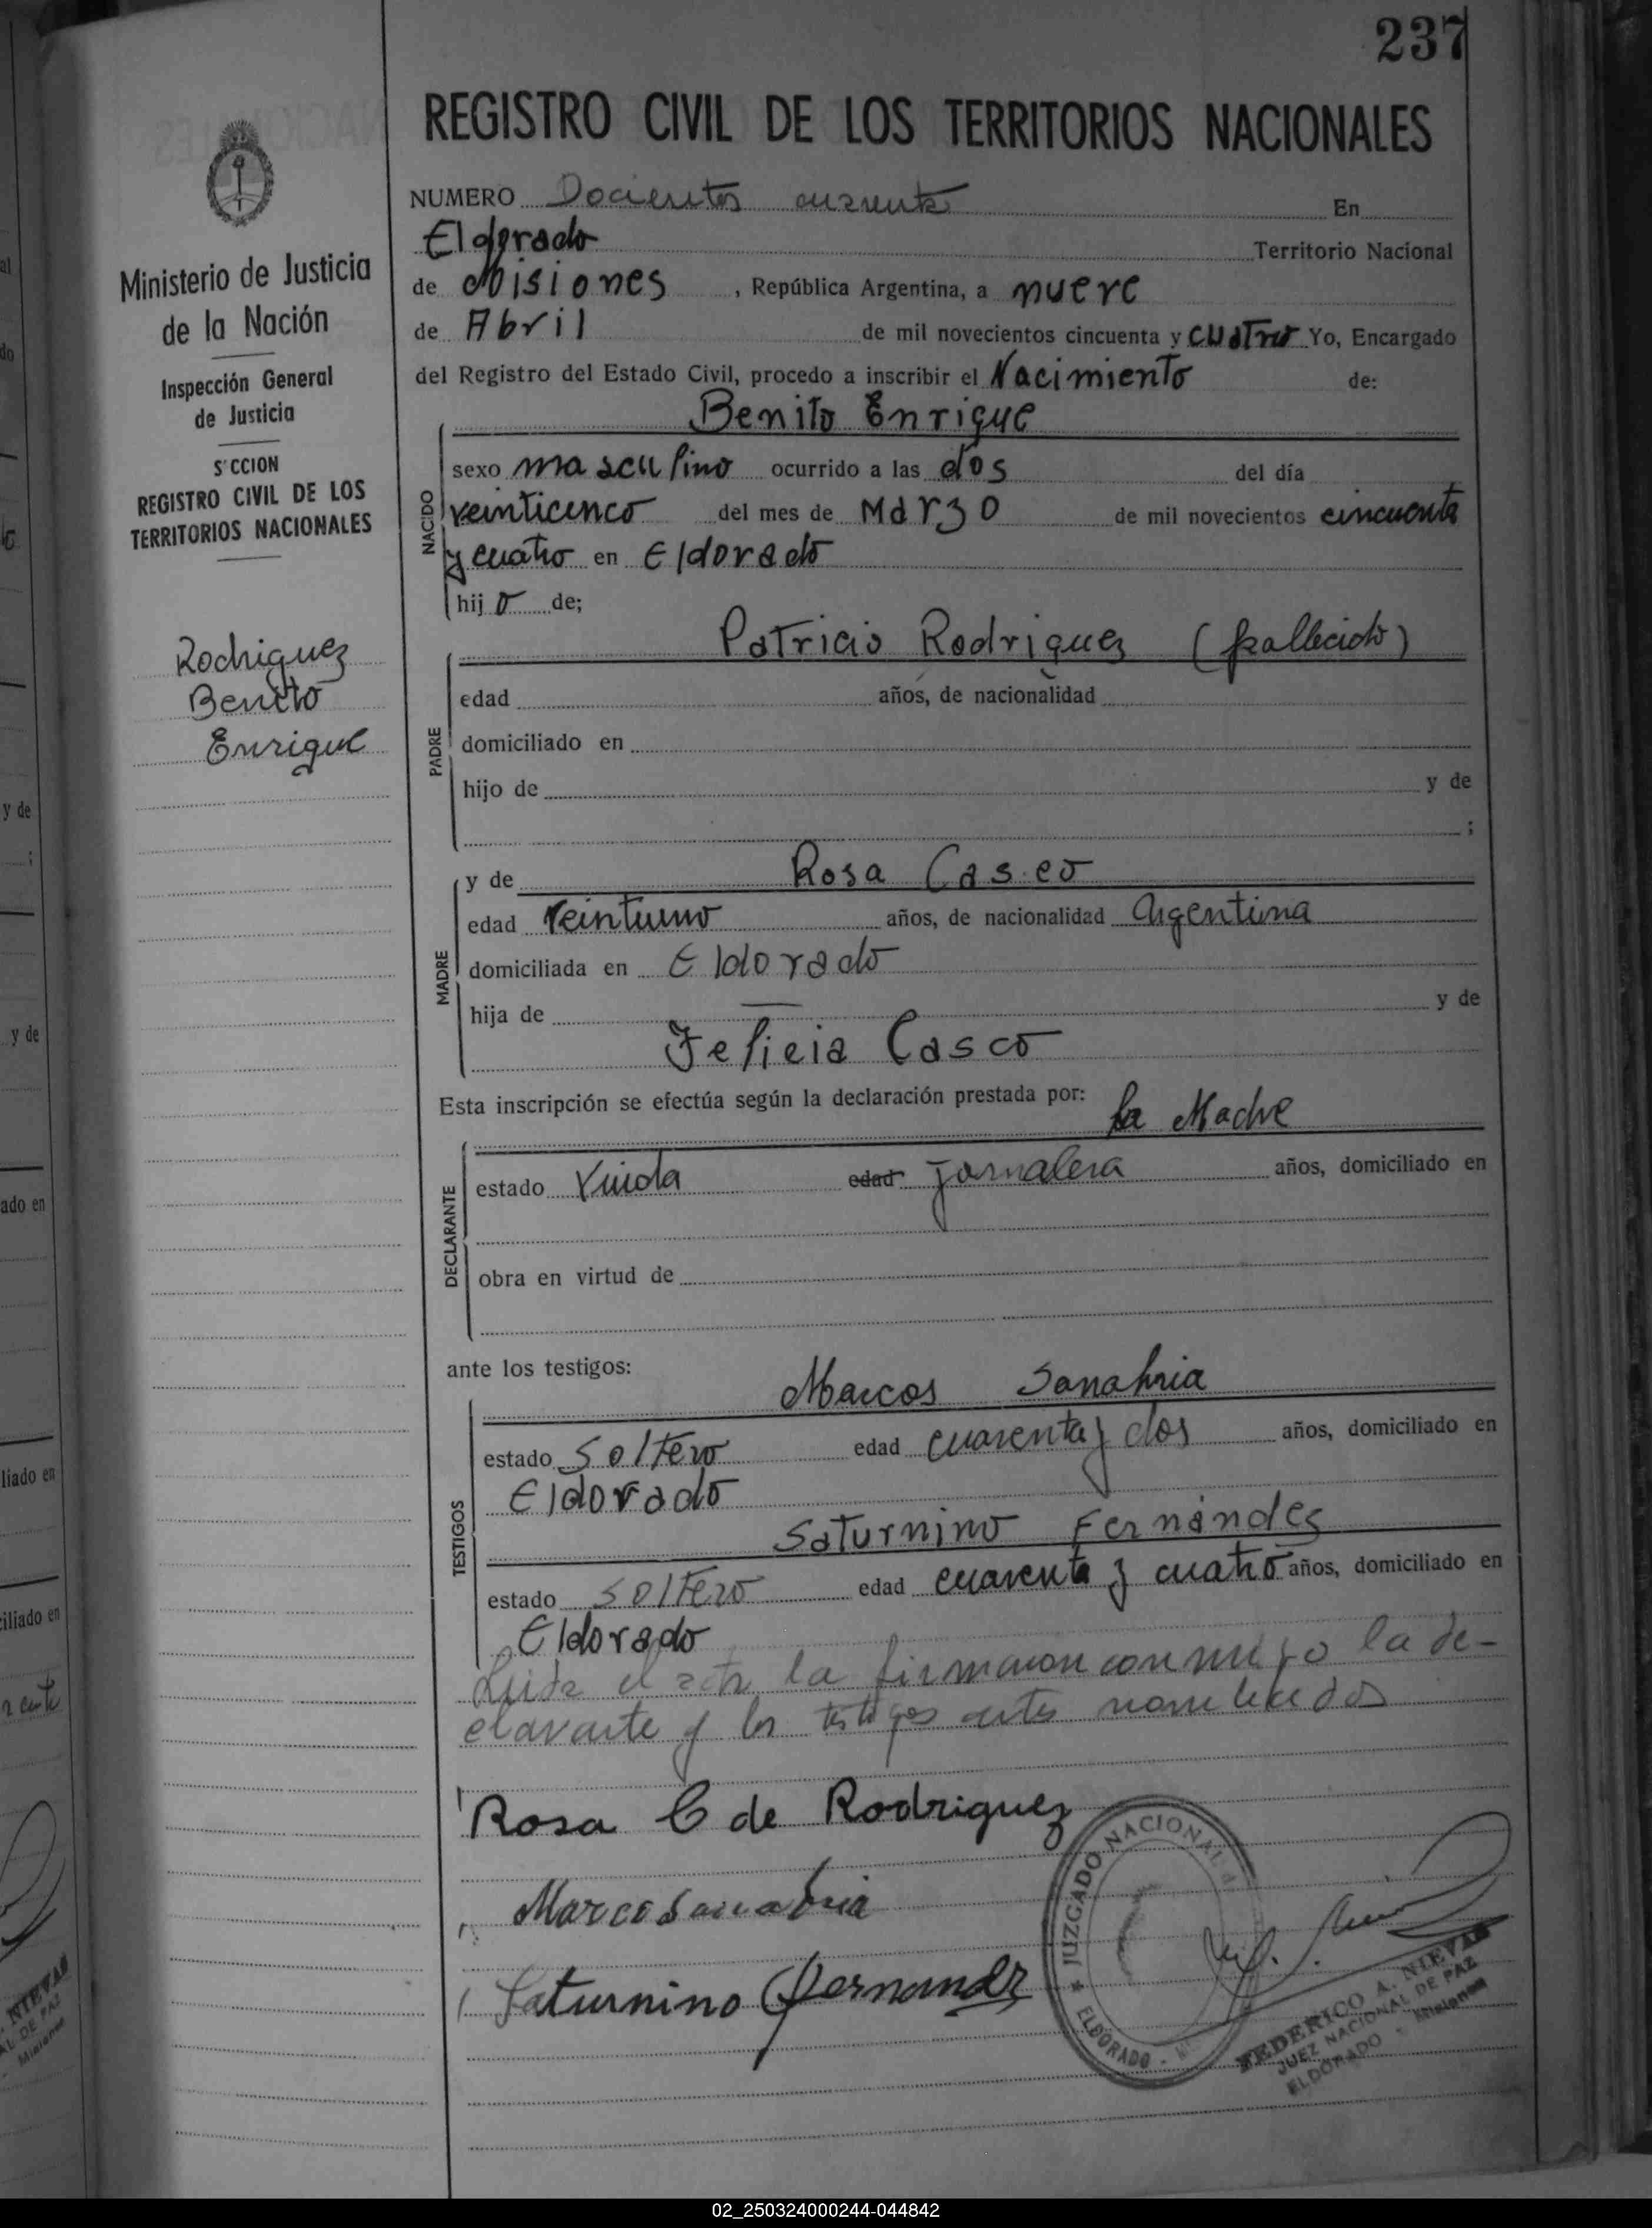 237
REGISTRO CIVIL DE LOS TERRITORIOS NACIONALES
Ministerio de Justicia
de la Nación
Inspección General
de Justicia
S'CCION
REGISTRO CIVIL DE LOS
TERRITORIOS NACIONALES
Rodriguez
Benito
Enrique
NUMERO Docientos cuarenta En
Eldorado Territorio Nacional
de Misiones, República Argentina, a nueve
de Abril de mil novecientos cincuenta y cuatro Yo, Encargado
del Registro del Estado Civil, procedo a inscribir el Nacimiento de:
NACIDO
Benito Enrique
sexo masculino ocurrido a las dos del día
veinticinco del mes de Marzo de mil novecientos cincuenta
y cuatro en Eldorado
hijo de;
PADRE
Patricio Rodriguez (fallecido)
edad años, de nacionalidad
domiciliado en
hijo de y de
;
MADRE
y de Rosa Casco
edad veintiuno años, de nacionalidad Argentina
domiciliada en Eldorado
hija de — y de
Felicia Casco
Esta inscripción se efectúa según la declaración prestada por:
la Madre
DECLARANTE
estado Viuda edad jornalera años, domiciliado en
obra en virtud de
ante los testigos:
TESTIGOS
Marcos Sanabria
estado Soltero edad cuarenta y dos años, domiciliado en
Eldorado
Saturnino Fernández
estado Soltero edad cuarenta y cuatro años, domiciliado en
Eldorado
Leida el acta la firmaron conmigo la de-
clarante y los testigos antes nombrados
Rosa C de Rodriguez
Marco Sanabria
Saturnino Fernandz
JUZGADO NACIONAL
ELDORADO
FEDERICO A. NIEVAS
JUEZ NACIONAL DE PAZ
ELDORADO - Misiones
al
do
y de
;
y de
ado en
liado en
ciliado en
NIEVAS
AL DE PAZ
Misiones
02_250324000244-044842